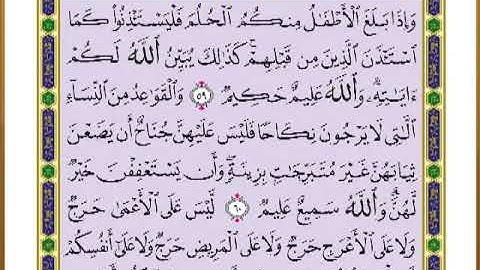 وَإِذَا بَلَغَ ٱلْأَطْفَٰلُ مِنكُمُ ٱلْحُلُمَ فَلْيَسْتَـْٔذِنُوا۟ كَمَا
ٱسْتَـْٔذَنَ ٱلَّذِينَ مِن قَبْلِهِمْ ۚ كَذَٰلِكَ يُبَيِّنُ ٱللَّهُ لَكُمْ
ءَايَٰتِهِۦ ۗ وَٱللَّهُ عَلِيمٌ حَكِيمٌ ٥٩ وَٱلْقَوَٰعِدُ مِنَ ٱلنِّسَآءِ
ٱلَّٰتِى لَا يَرْجُونَ نِكَاحًا فَلَيْسَ عَلَيْهِنَّ جُنَاحٌ أَن يَضَعْنَ
ثِيَابَهُنَّ غَيْرَ مُتَبَرِّجَٰتٍۭ بِزِينَةٍ ۖ وَأَن يَسْتَعْفِفْنَ خَيْرٌ
لَّهُنَّ ۗ وَٱللَّهُ سَمِيعٌ عَلِيمٌ ٦٠ لَّيْسَ عَلَى ٱلْأَعْمَىٰ حَرَجٌ
وَلَا عَلَى ٱلْأَعْرَجِ حَرَجٌ وَلَا عَلَى ٱلْمَرِيضِ حَرَجٌ وَلَا عَلَىٰٓ أَنفُسِكُمْ